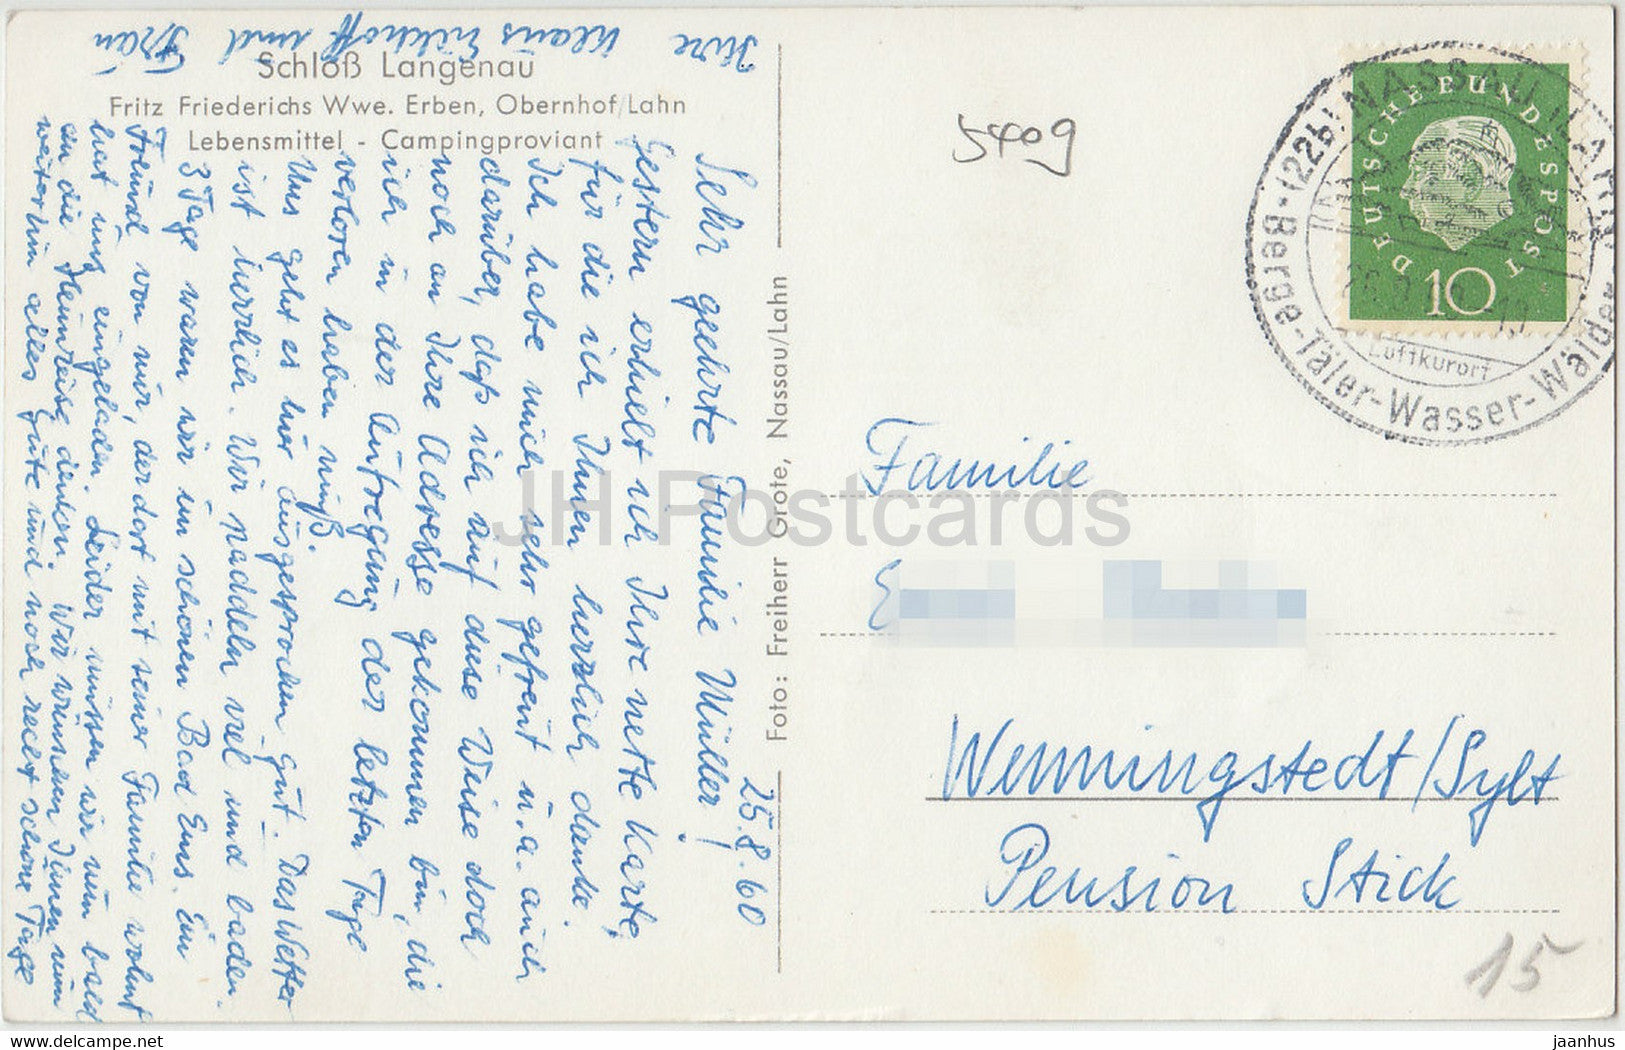 Schloß Langenau
Fritz Friederichs Wwe. Erben, Obernhof/Lahn
Lebensmittel - Campingproviant
25.8.60
Sehr geehrte Familie Müller!
Gestern erhielt ich Ihre nette Karte,
für die ich Ihnen herzlich danke.
Ich habe mich sehr gefreut u.a. auch
darüber, daß ich auf diese Weise doch
noch an Ihre Adresse gekommen bin, die
ich in der Aufregung der letzten Tage
verloren haben muß.
Uns geht es hier ausgesprochen gut. Das Wetter
ist herrlich. Wir paddeln viel und baden.
3 Tage waren wir im schönen Bad Ems. Ein
Freund von mir, der dort mit seiner Familie wohnt
hat uns eingeladen. Leider müssen wir nun bald
an die Heimreise denken. Wir wünschen Ihnen nun
weiterhin alles Gute und noch recht schöne Tage
Ihre Klaus Eickhoff und Frau
Foto: Freiherr Grote, Nassau/Lahn
5409
(22b) NASSAU (LAHN)
Luftkurort
Berge-Täler-Wasser-Wälder
DEUTSCHE BUNDESPOST
10
Familie
E
Wenningstedt/Sylt
Pension Stick
15
JH Postcards
www.delcampe.net
jaanhus